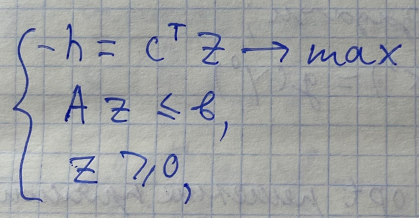 -h = cᵀ z → max
A z ≤ b,
z ≥ 0,